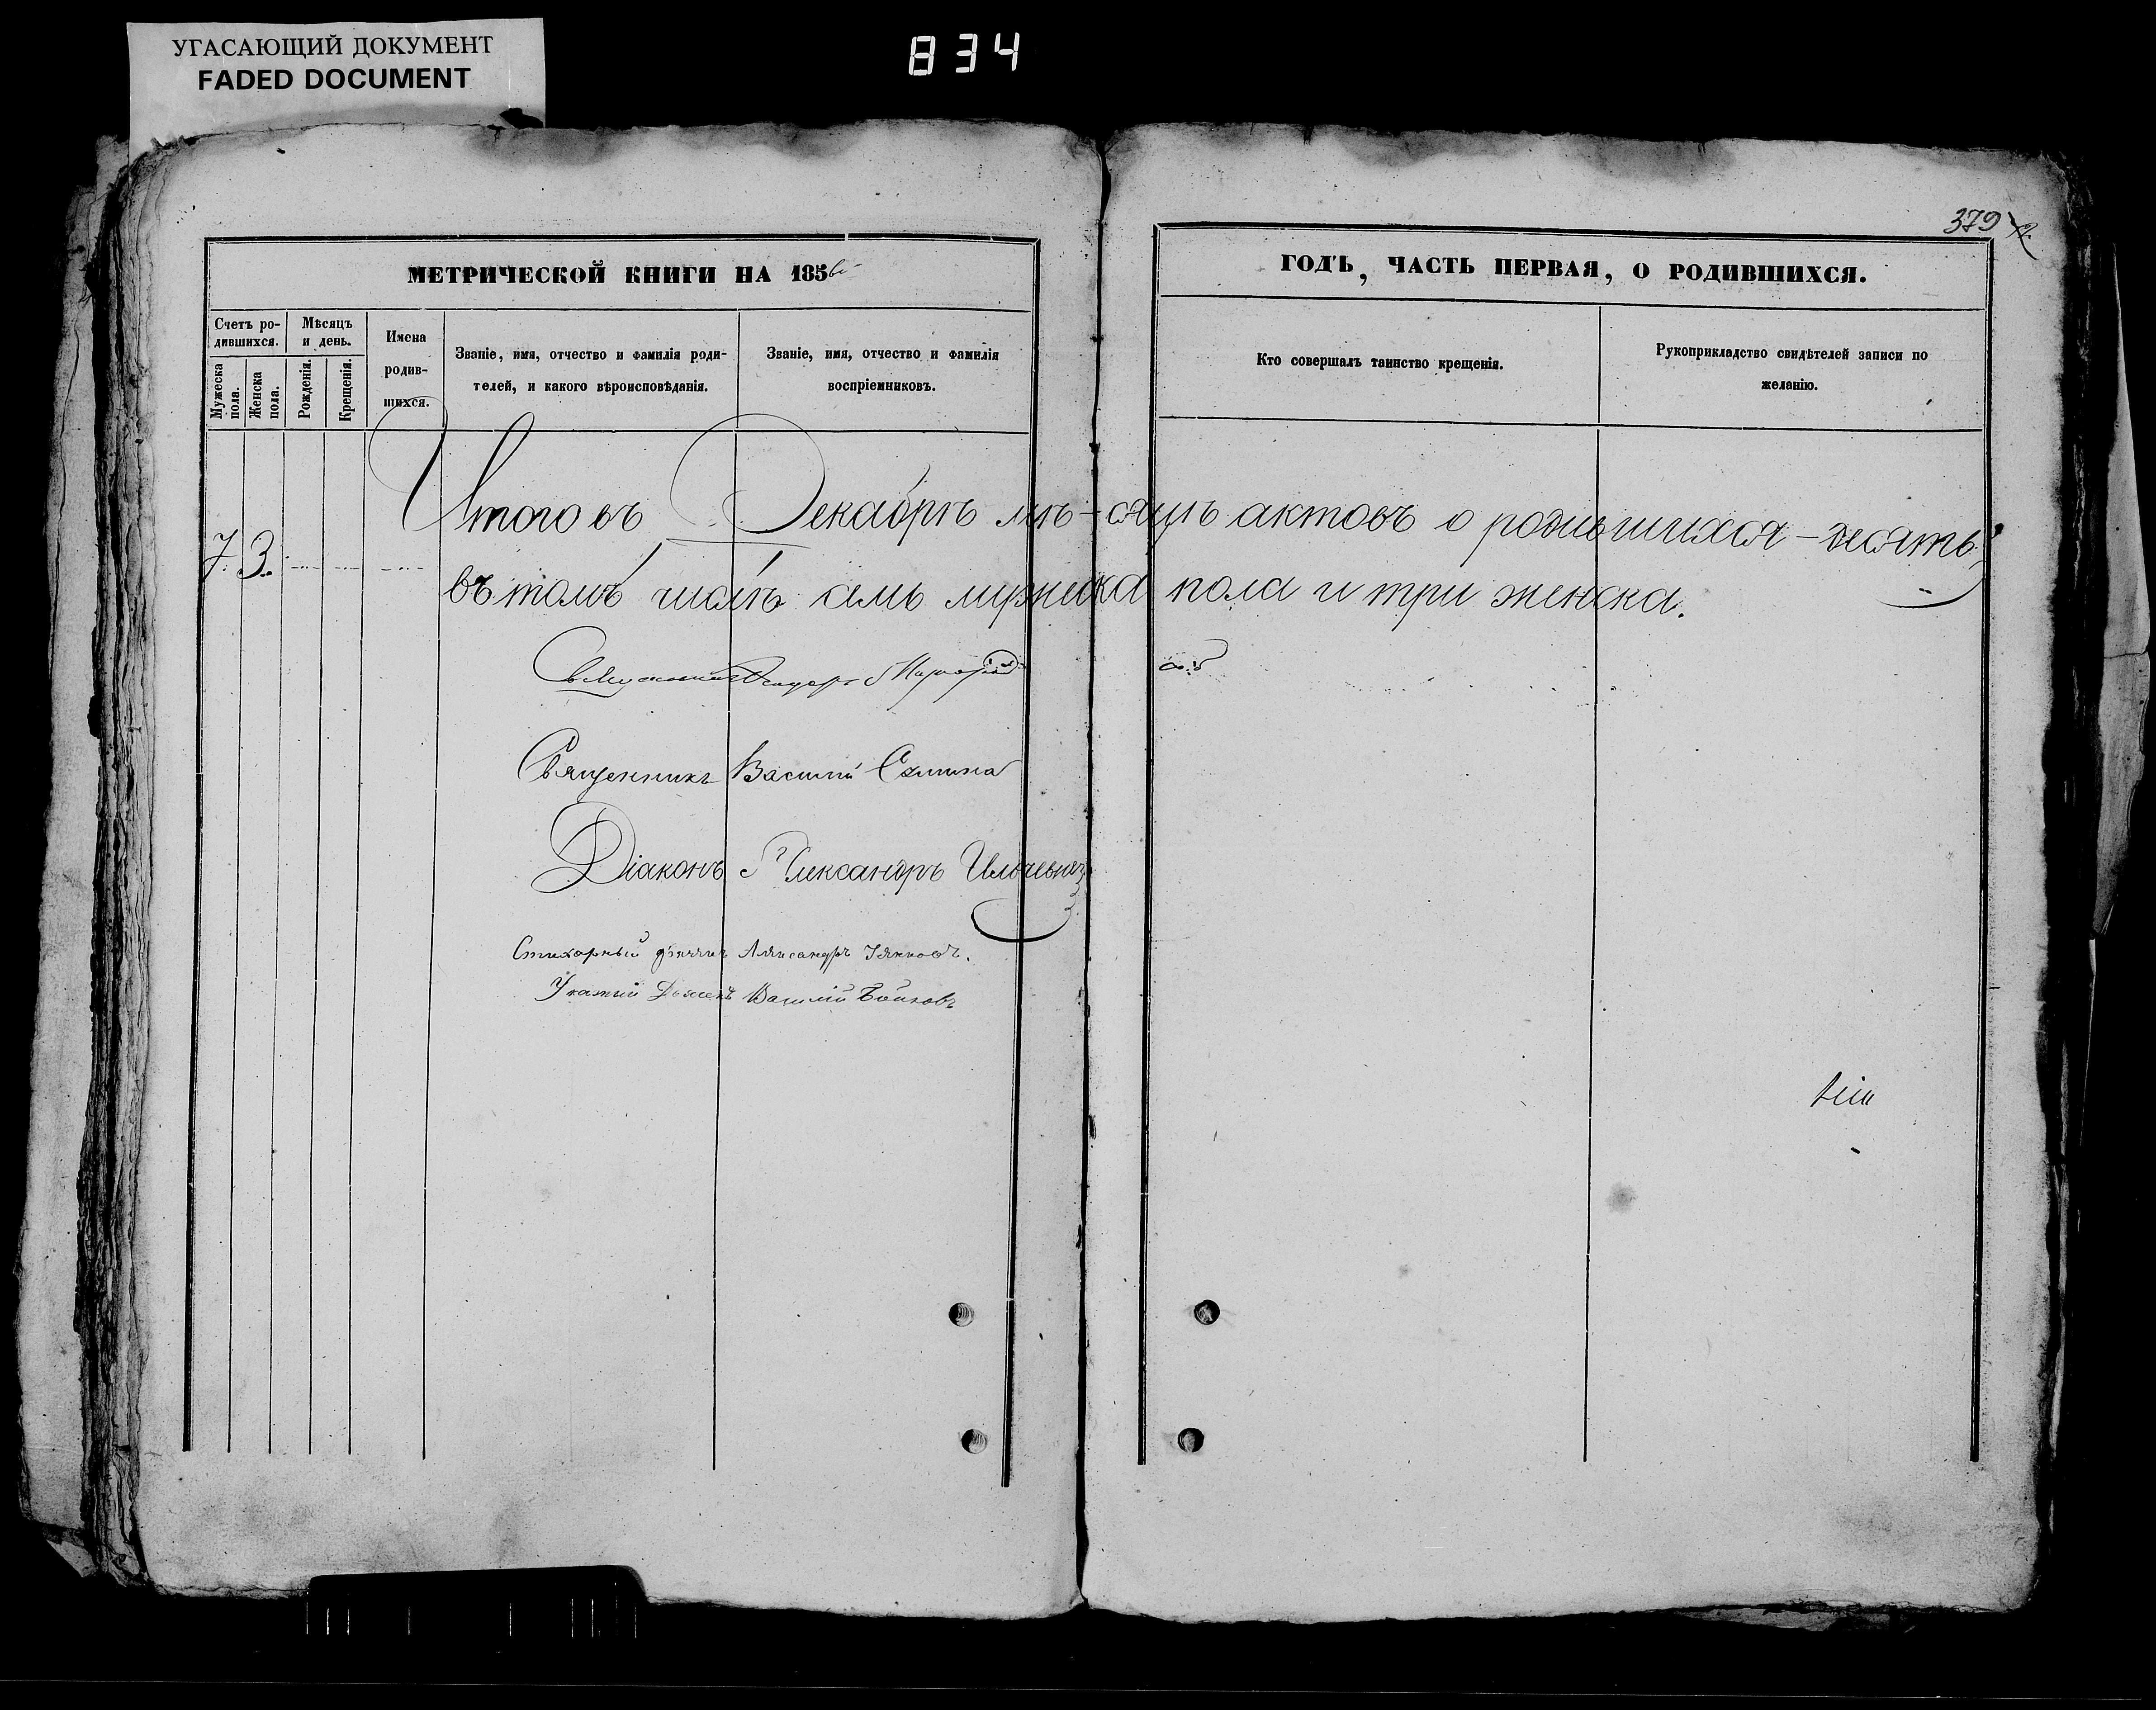 УГАСАЮЩИЙ ДОКУМЕНТ
FADED DOCUMENT
834
379
МЕТРИЧЕСКОЙ КНИГИ НА 185
ГОДЪ, ЧАСТЬ ПЕРВАЯ, О РОДИВШИХСЯ.
Счетъ ро-
дившихся.
Мужеска
пола.
Женска
пола.
Мѣсяцъ
и день.
Рожденія.
Крещенія.
Имена
родив-
шихся.
Званіе, имя, отчество и фамилія роди-
телей, и какого вѣроисповѣданія.
Званіе, имя, отчество и фамилія
воспріемниковъ.
Кто совершалъ таинство крещенія.
Рукоприкладство свидѣтелей записи по
желанію.
Итого въ Декабрѣ мѣ-сяцѣ актовъ о родившихся - десять;
7. 3.
въ томъ числѣ семь мужеска пола и три женска.
Священникъ Василій
Діаконъ Александръ
Стихарный Александръ
Василій